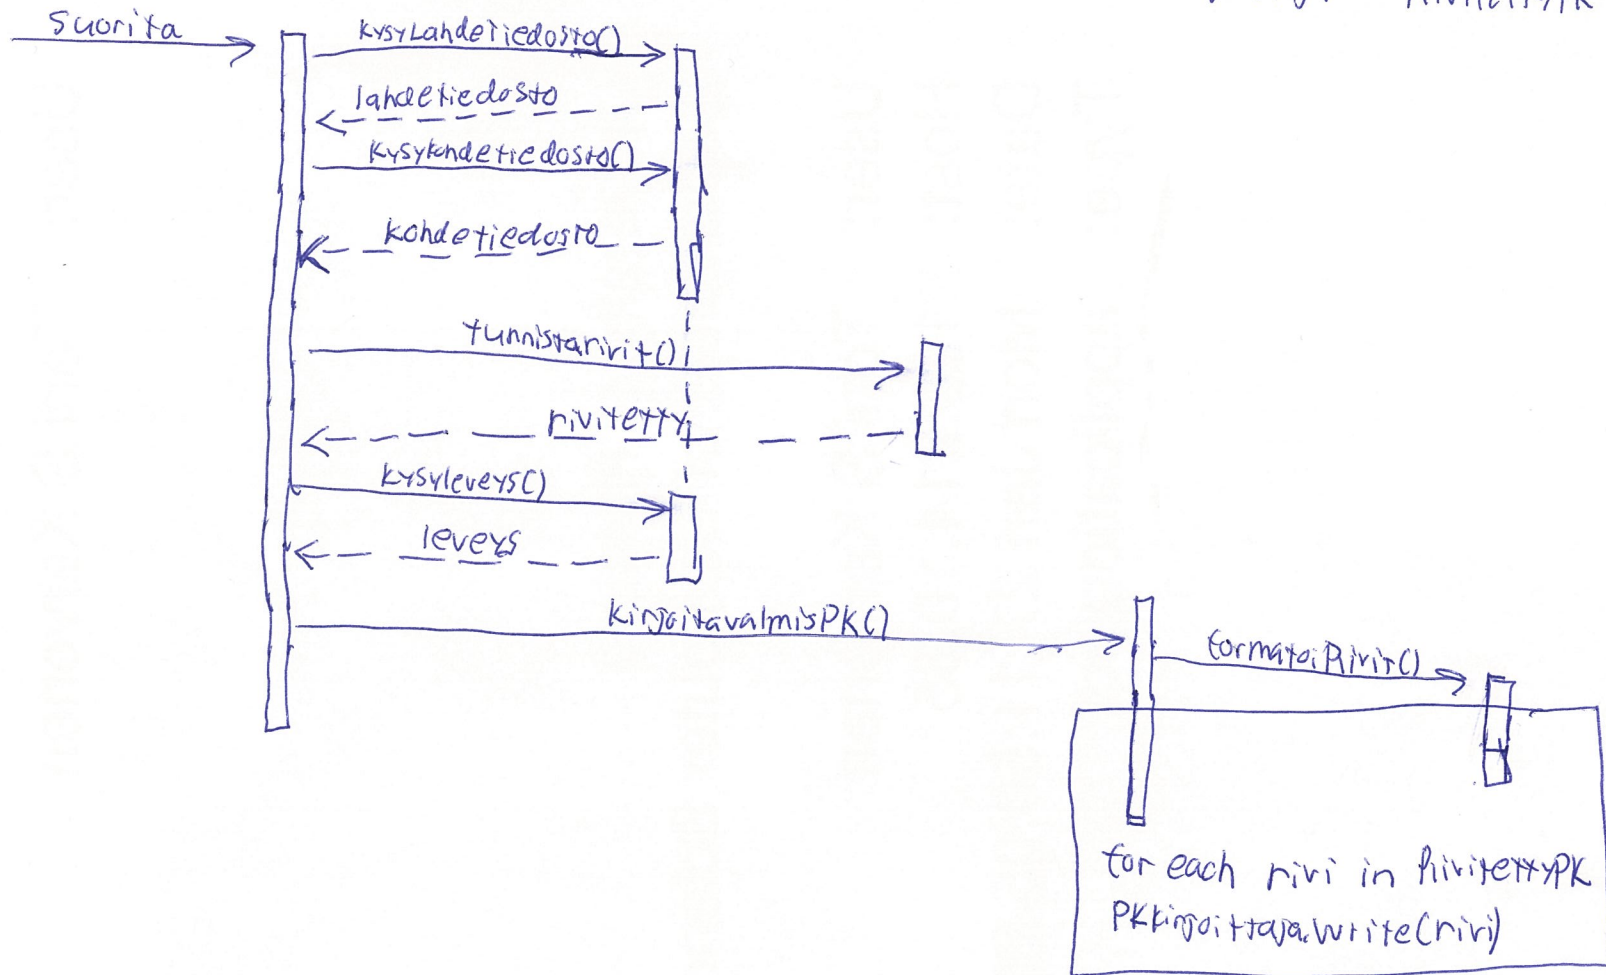 Suorita
kysyLahdetiedosto()
lahdetiedosto
kysykohdetiedosto()
kohdetiedosto
tunnistarivit()
rivitetty
kysyleveys()
leveys
kirjoitavalmisPK()
formatoiRivit()
for each rivi in RivitettyPK
PKkirjoittaja.write(rivi)